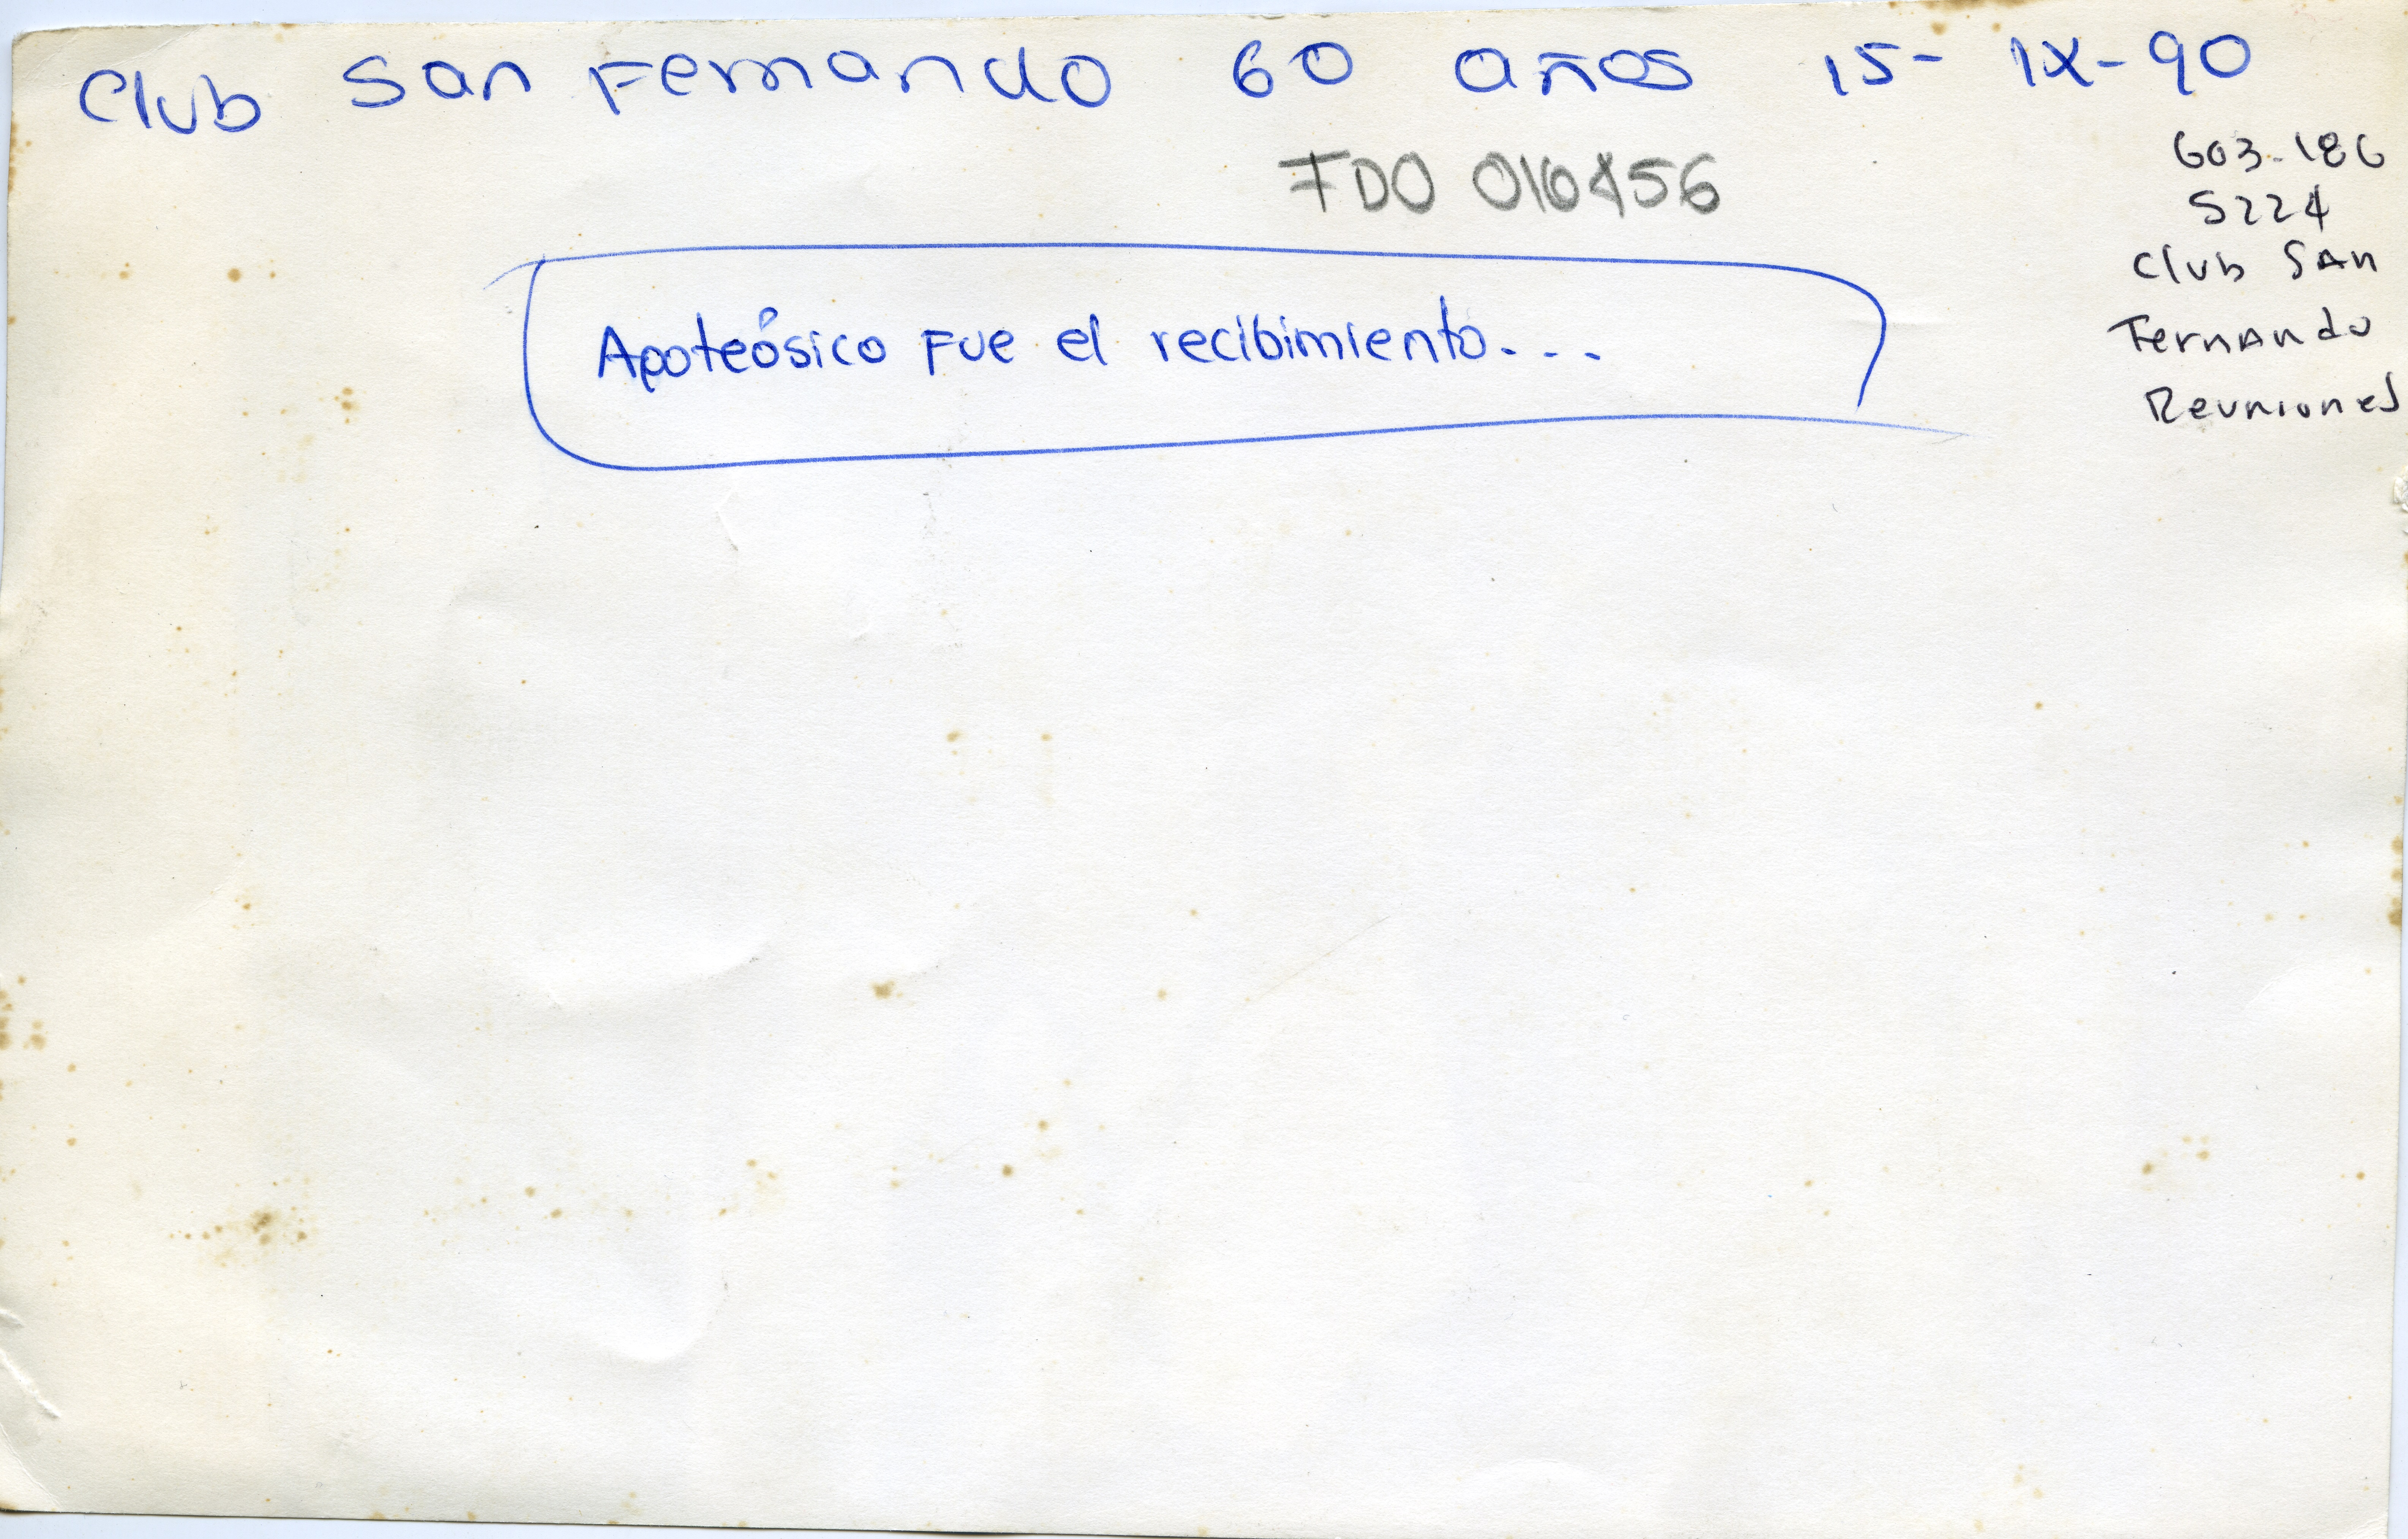 Club San Fernando 60 años 15-IX-90
FDO 016456
603-186
S224
Club SAn
Fernando
Reuniones
Apoteósico Fue el recibimiento...